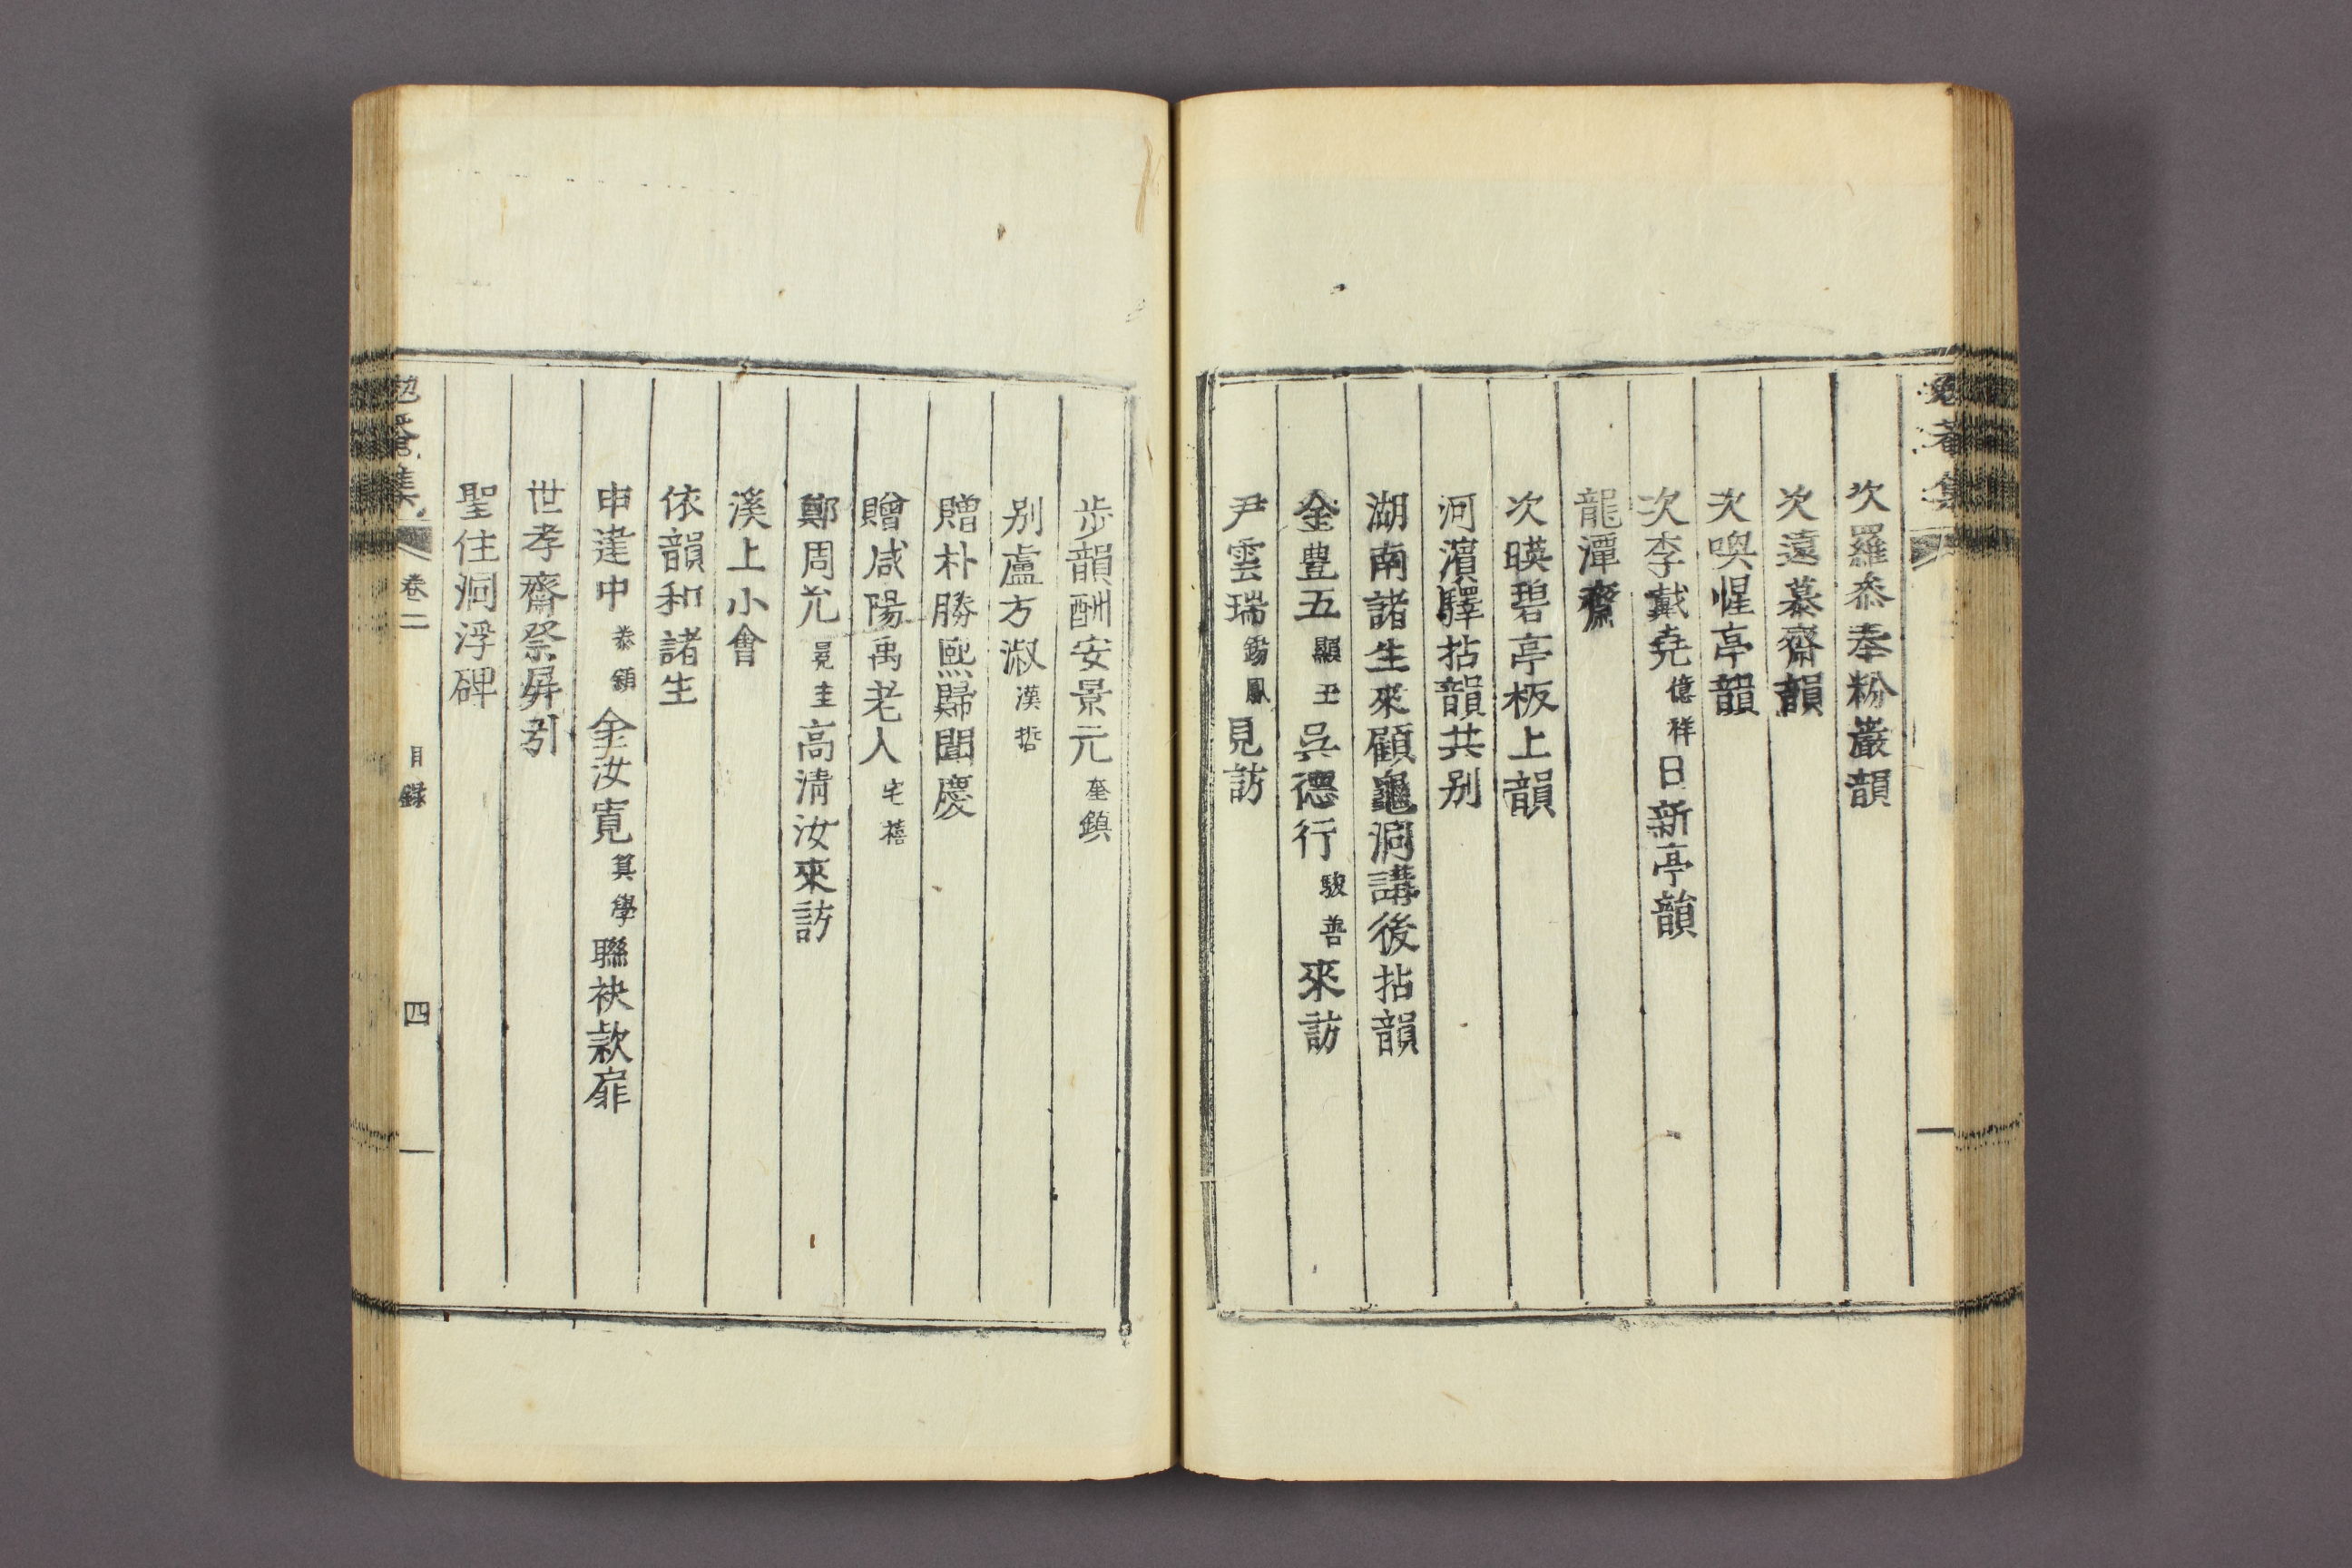 次羅叅奉粉巖韻
次遠慕齋韻
次喚惺亭韻
次李戴堯億祥日新亭韻
龍潭齋
次暎碧亭板上韻
河濱驛拈韻共別
湖南諸生來顧龜洞講後拈韻
金豊五顯玉吳德行駿善來訪
尹雲瑞錫鳳見訪
步韻酬安景元奎鎮
別盧方淑漢哲
贈朴勝熙歸聞慶
贈咸陽禹老人宅禧
鄭周允冕圭高清汝來訪
溪上小會
依韻和諸生
申逢中泰領金汝寬箕學聯袂款扉
世孝齋祭屏引
聖住洞浮碑
卷二
目錄
四